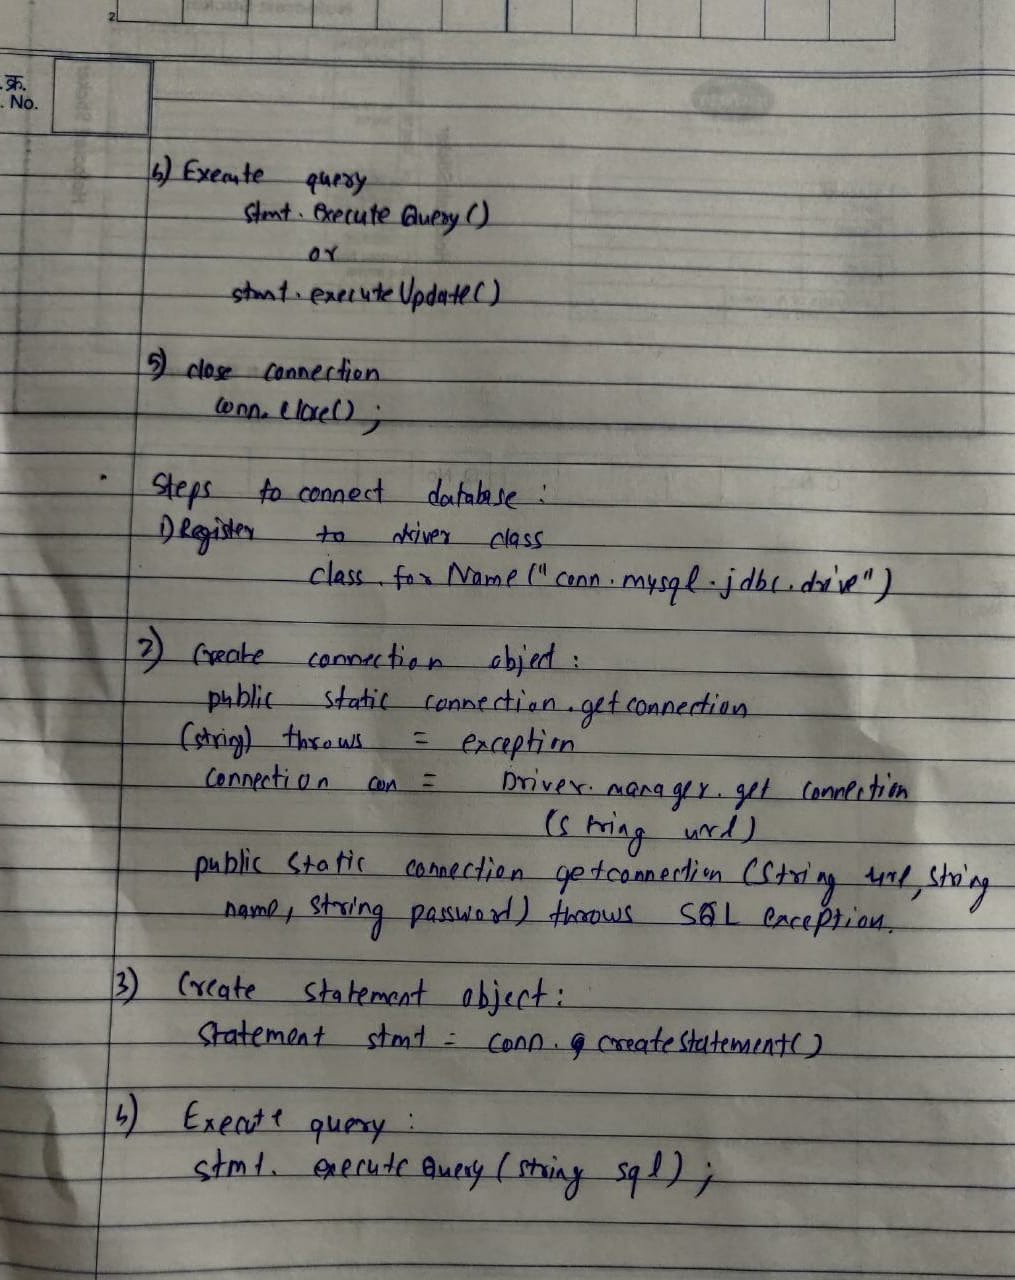 2
.क्र.
. No.
4) Execute query
stmt. Execute Query ()
or
stmt. execute Update()
5) close connection
conn. close();
Steps to connect database :
1) Register to driver class
class. for Name (" conn. mysql. jdbc. drive")
2) Create connection object :
public static connection. get connection
(string) throws = exception
Connection con = Driver. manager. get connection
(String url)
public static connection getconnection (String url, string
name, string password) throws SQL exception.
3) Create statement object :
Statement stmt = conn. createStatement()
4) Execute query :
stmt. execute Query (string sql);